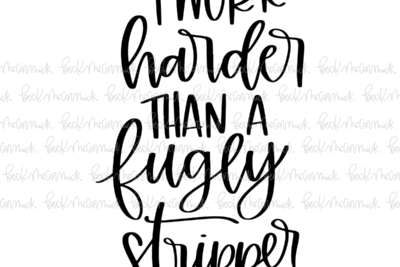 I WORK
harder
THAN A
fugly
stripper